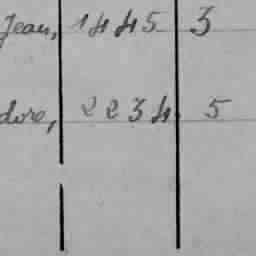 Jean, 1445 3
dore, 2234 5